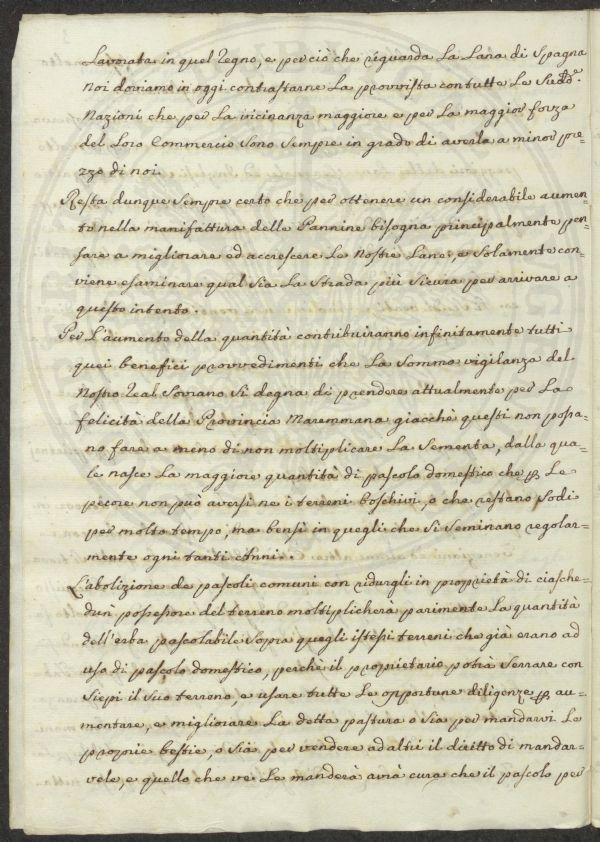 Lavorata in quel Regno, e per ciò che riguarda La Lana di Spagna
noi doviamo in oggi contrastarne La provvista con tutte Le Sudd.e
Nazioni che per La vicinanza maggiore e per La maggior forza
del Loro Commercio Sono Sempre in grado di averla a minor pre=
zzo di noi.
Resta dunque Sempre certo che per ottenere un considerabile aumen=
to nella manifattura delle Pannine bisogna principalmente pen=
sare a migliorare ed accrescere Le Nostre Lane, e Solamente con=
viene esaminare qual Sia La Strada più Sicura per arrivare a
questo intento.
Per L'aumento della quantità contribuiranno infinitamente tutti
quei benefici provvedimenti che La Somma vigilanza del
Nostro Real Sovrano Si degna di prendere attualmente per La
felicità della Provincia Maremmana giacchè questi non posso=
no fare a meno di non moltiplicare La Sementa, dalla qua=
le nasce La maggiore quantità di pascolo domestico che p Le
pecore non può aversi ne i terreni boschivi, o che restano Sodi
per molto tempo, ma bensì in quegli che Si Seminano regolar=
mente ogni tanti Anni..
L'abolizione de pascoli comuni con ridurgli in proprietà di ciasche=
dun possessore del terreno moltiplicherà parimente La quantità
dell'erba pascolabile Sopra quegli istessi terreni che già erano ad
uso di pascolo domestico, perchè il proprietario potrà Serrare con
Siepi il Suo terreno, e usare tutte Le opportune diligenze p au=
mentare, e migliorare La detta pastura o Sia per mandarvi Le
proprie bestie, o Sia per vendere ad altri il diritto di mandar=
vele, e quello che ve Le manderà avrà cura che il pascolo per